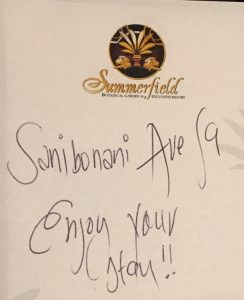 Summerfield
BOTANICAL GARDEN & EXCLUSIVE RESORT
Sanibonani Ave
Enjoy your
stay!!